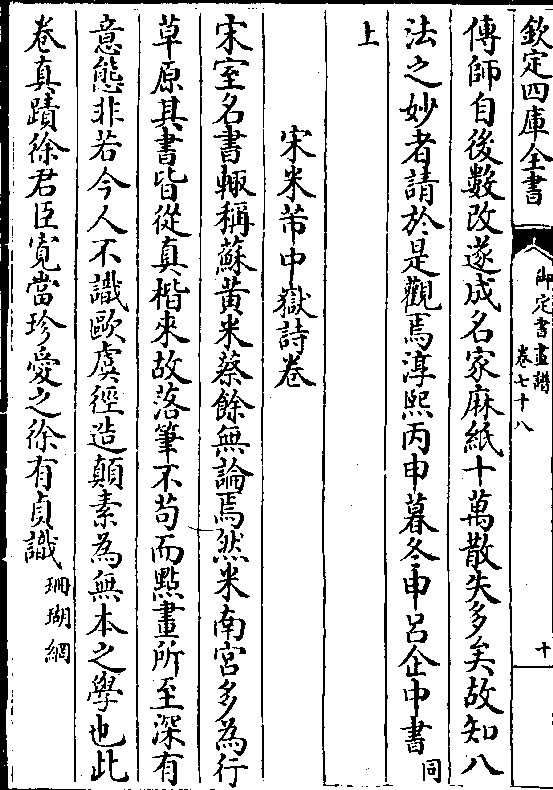 欽定四庫全書
御定書畫譜
卷七十八
十
傳師自後數改遂成名家麻紙十萬散失多矣故知八
法之妙者請於是觀焉淳熙丙申暮冬申呂企中書同
上
宋米芾中嶽詩卷
宋室名書輙稱蘇黃米蔡餘無論焉然米南宮多為行
草原其書皆從真楷來故落筆不苟而點畫所至深有
意態非若今人不識歐虞徑造顛素為無本之學也此
卷真蹟徐君臣寛當珍愛之徐有貞識珊瑚網